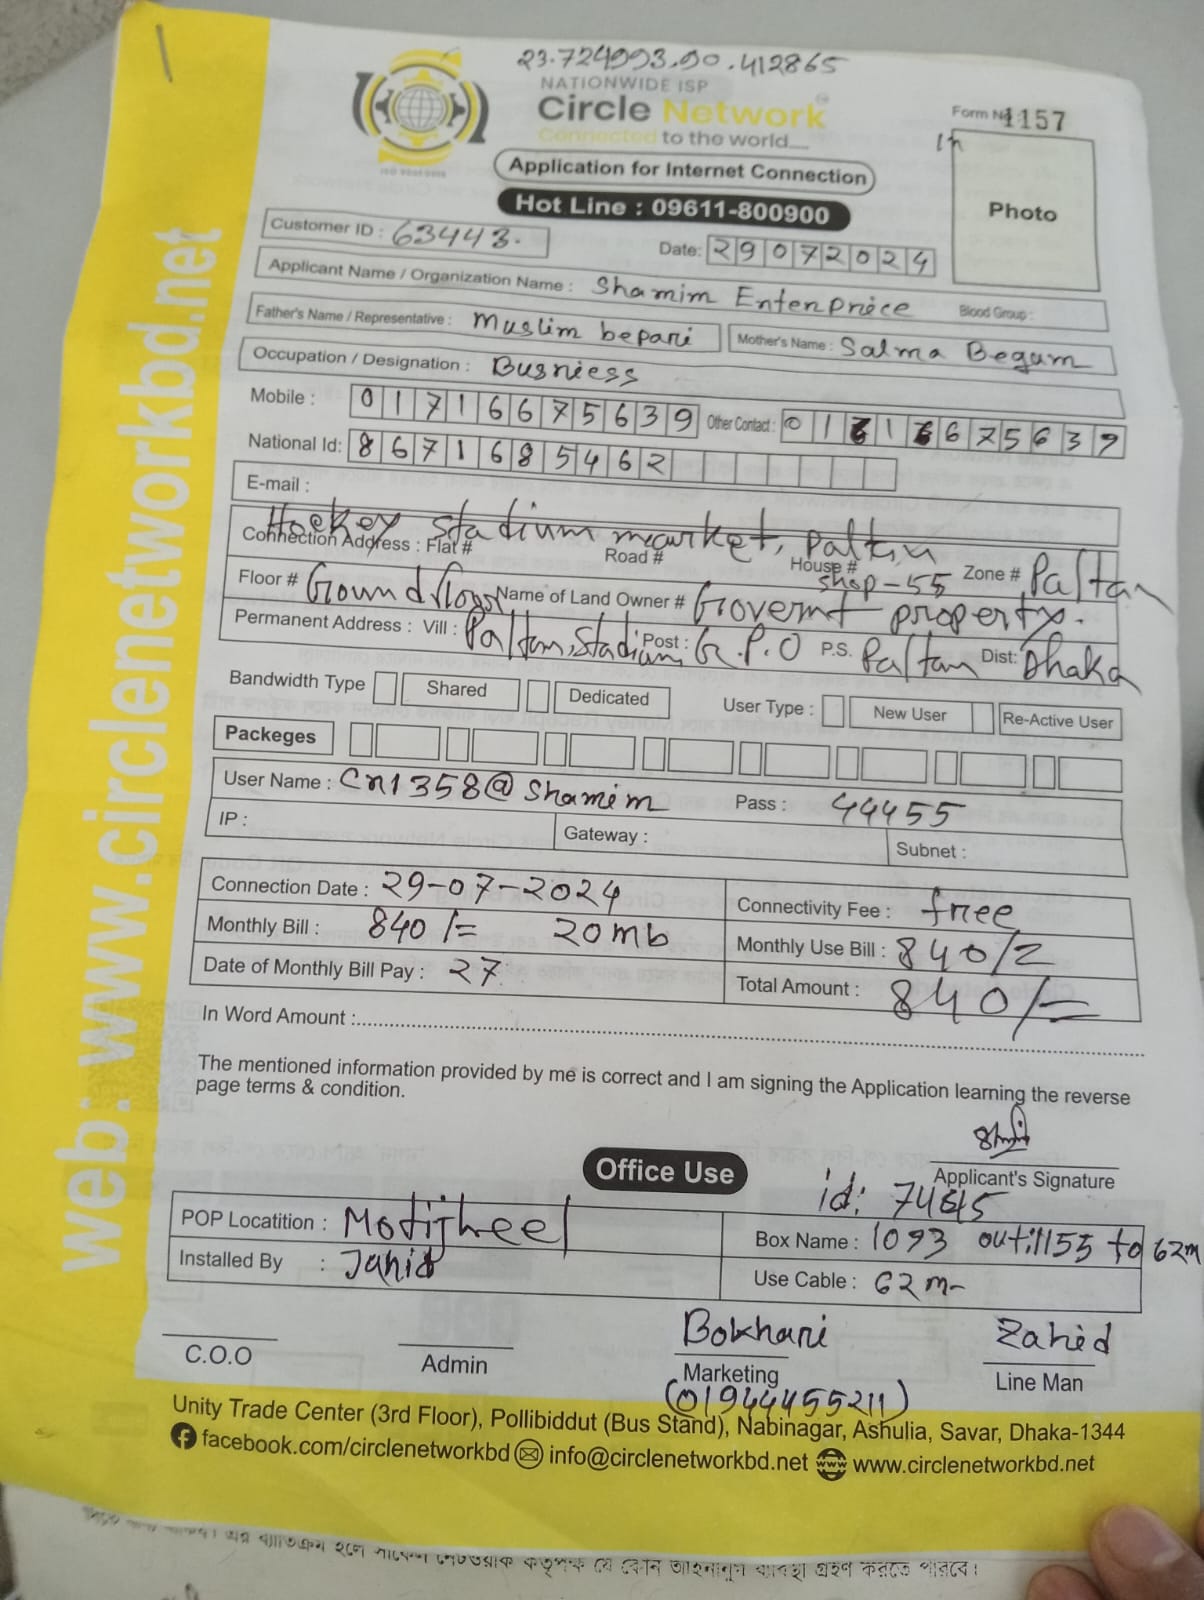 23.724993.90.412865
NATIONWIDE ISP
Circle Network
Connected to the world....
Form No 1157
Application for Internet Connection
Photo
Hot Line : 09611-800900
Customer ID : 63443.
Date: 29072024
Applicant Name / Organization Name : Shamim Enterprice Blood Group :
Father's Name / Representative : Muslim bepari Mother's Name : Salma Begum
Occupation / Designation : Busniess
Mobile : 01716675639 Other Contact : 01716675639
National Id: 8671685462
E-mail :
Hockey stadium market, Paltan
Connection Address : Flat # Road # House # shop-55 Zone # Paltan
Floor # Ground floor Name of Land Owner # Governt property.
Permanent Address : Vill : Paltan, Stadium Post : G.P.O P.S. Paltan Dist: Dhaka
Bandwidth Type Shared Dedicated User Type : New User Re-Active User
Packeges
User Name : Cn1358@Shamim Pass : 44455
IP : Gateway : Subnet :
Connection Date : 29-07-2024 Connectivity Fee : free
Monthly Bill : 840/= 20mb Monthly Use Bill : 840/=
Date of Monthly Bill Pay : 27 Total Amount : 840/=
In Word Amount :
The mentioned information provided by me is correct and I am signing the Application learning the reverse
page terms & condition.
Applicant's Signature
Office Use
id:
POP Locatition : Motijheel Box Name : 1093 out:1155 to 62m
Installed By : Jahid Use Cable : 62m-
Bokhari Zahed
C.O.O Admin Marketing Line Man
(01944455211)
Unity Trade Center (3rd Floor), Pollibiddut (Bus Stand), Nabinagar, Ashulia, Savar, Dhaka-1344
facebook.com/circlenetworkbd info@circlenetworkbd.net www.circlenetworkbd.net
web: www.circlenetworkbd.net
হলে সার্কেল নেটওয়ার্ক কর্তৃপক্ষ যে কোন আইনানুগ ব্যবস্থা গ্রহণ করতে পারবে।